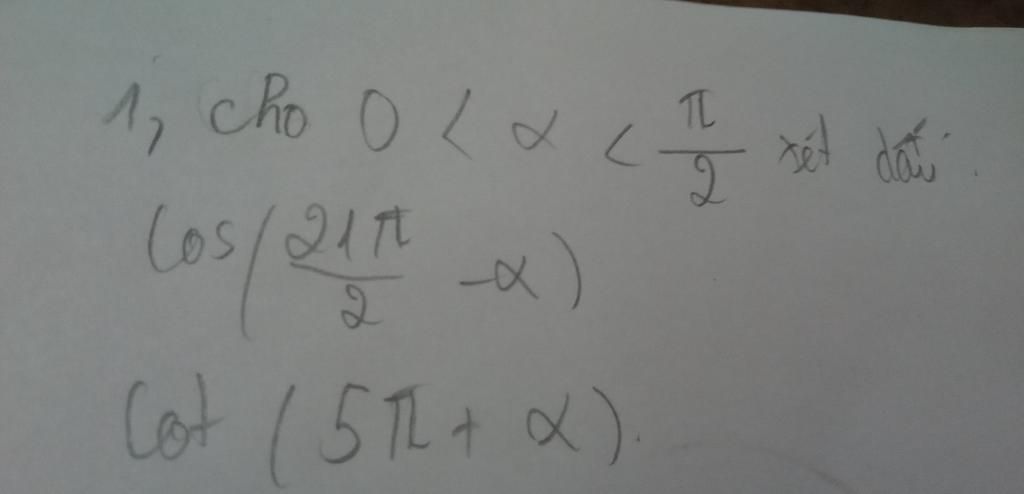 1, cho 0 < α < π/2 xét dấu.
Cos(21π/2 -α)
Cot (5π + α).